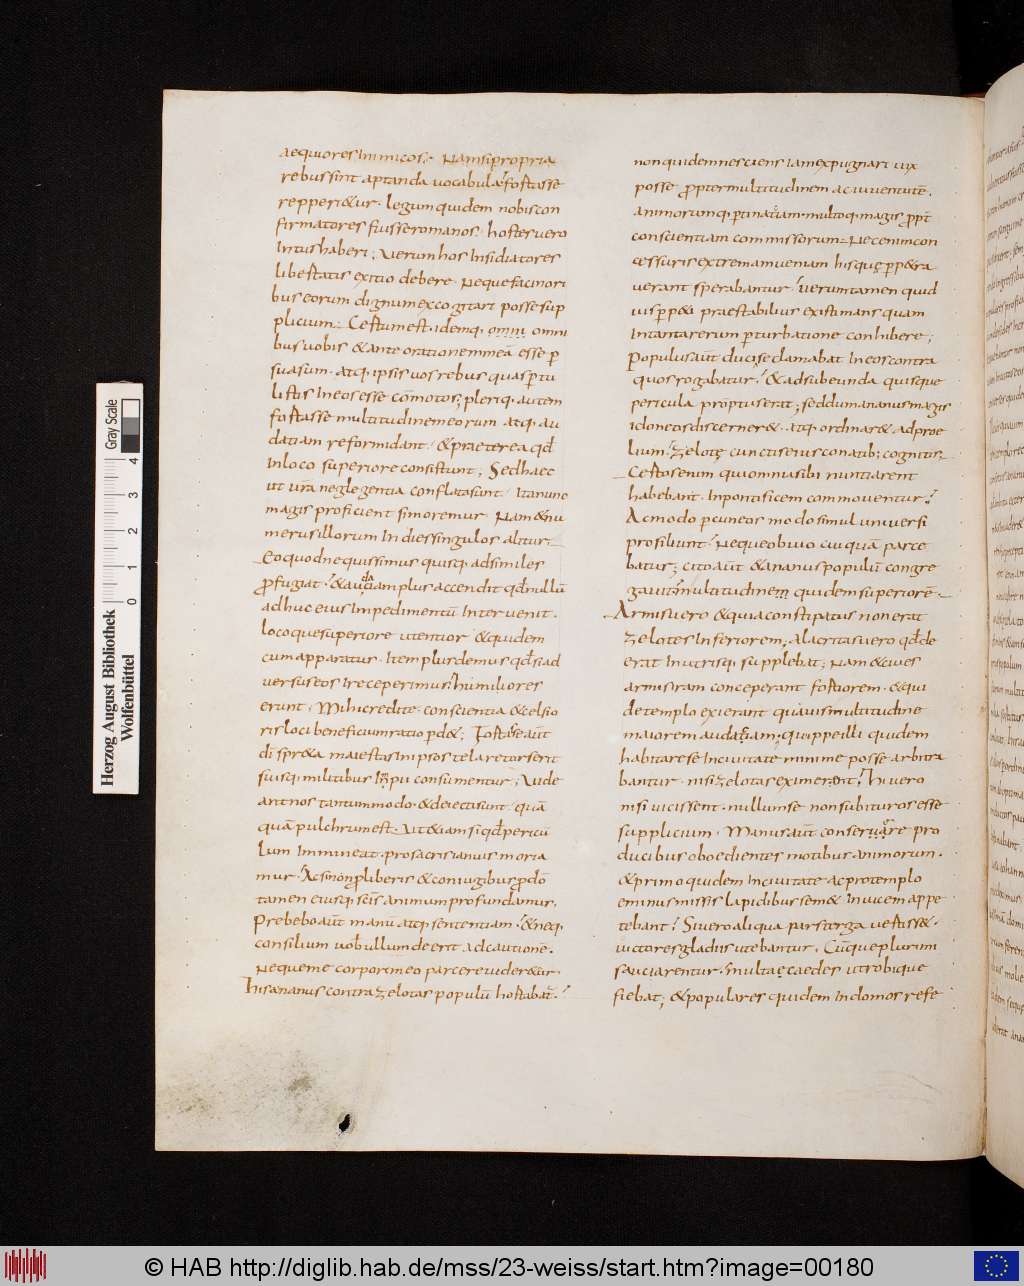 aequiores inimicos; Nam si propria
rebus sint aptanda uocabula fortasse
repperietur. legum quidem nobis con
firmatores fuisse romanos. hostes uero
intus haberi; Uerum hos insidiatores
libertatis exitio debere. Neque facinori
bus eorum dignum excogitari posse sup
plicium; Certum est. idemq. omni
bus uobis & ante orationem meā esse p
suasum. atq. ipsis uos rebus quas ptu
listis in eos esse cōmotos; pleriq. autem
fortasse multitudinem eorum atq. au
datiam reformidant. & praeterea qđ
in loco superiore consistunt; Sed haec
ut urā neglegentia conflata sunt. ita nunc
magis proficient si moremur. Nam & nu
merus illorum in dies singulos alitur;
Eo quod nequissimus quisq. ad similes
pfugiat. & audatiam plus accendit qđ nullū
adhuc eius impedimentū interuenit.
locoque superiore utentior & quidem
cum apparatur. item plus demus qđ si ad
uersus eos ire ceperimus. humiliores
erunt. Mihi credite. conscientia & celsio
ris loci beneficium ratio pd&; Fortasse aūt
dī spr&a maiestas in ipsos tela retorserit
suisq. militibus impii consumentur; Uide
ant nos tantummodo. & deiecti sunt. quā
quā pulchrum est. ut & iam si qđ pericu
lum immineat. pro sacris ianuis moria
mur. Ac si non p liberis & coniugibus p dō
tamen eiusq. scīs animum profundamur.
Prebebo aūt manū atq. sententiam. & neq.
consilium uob ullum deerit ad cautionē.
Neque me corpori meo parcere uider&ur.
His ananus contra zelotas populū hortabat.
non quidem nesciens iam expugnari uix
posse propter multitudinem ac iuuentutē.
animorumq. ptinatiam. multoq. magis propt
conscientiam commissorum. Nec enim con
cessuris extremam ueniam his quę pp&ra
uerant sperabantur. uerum tamen quid
uis pp&i praestabilius existimans quam
in tanta rerum pturbatione conhibere;
Populus aūt duci se clamabat in eos contra
quos rogabatur. & ad subeunda quisque
pericula promptus erat; sed dum ananus magis
idoneos discerner& atq. ordinar& ad proe
lium. zelotę cunctis eius conatib; cognitis.
Certos enim qui omnia sibi nuntiarent
habebant. in pontificem commouentur.
Ac modo p cuneos modo simul uniuersi
prosiliunt. Neque obuio cuiquā parce
batur; cito aūt & ananus populū congre
gauit. multitudinem quidem superiorē.
Armis uero & quia constipatus non erat
zelotes inferiorem; Alacritas uero qđ de
erat in utrisq. supplebat; Nam & ciues
armis iram conceperant fortiorem. & qui
de templo exierant quauis multitudine
maiorem audatiam. quippe illi quidem
habitare se in ciuitate minime posse arbitra
bantur. nisi zelotas eximerent; hi uero
nisi uicissent. nullum se non subituros esse
supplicium. Manus aūt conseruare pro
ducibus oboedientes motibus animorum.
& primo quidem in ciuitate ac pro templo
eminus missis lapidibus sem& inuicem appe
tebant. Si uero aliqua pars terga uertiss&.
uictores gladiis utebantur. Cūque plurimi
sauciarentur. multae caedes utrobique
fiebat; & populares quidem in domos refe
Herzog August Bibliothek
Wolfenbüttel
Gray Scale
0 1 2 3 4
© HAB http://diglib.hab.de/mss/23-weiss/start.htm?image=00180